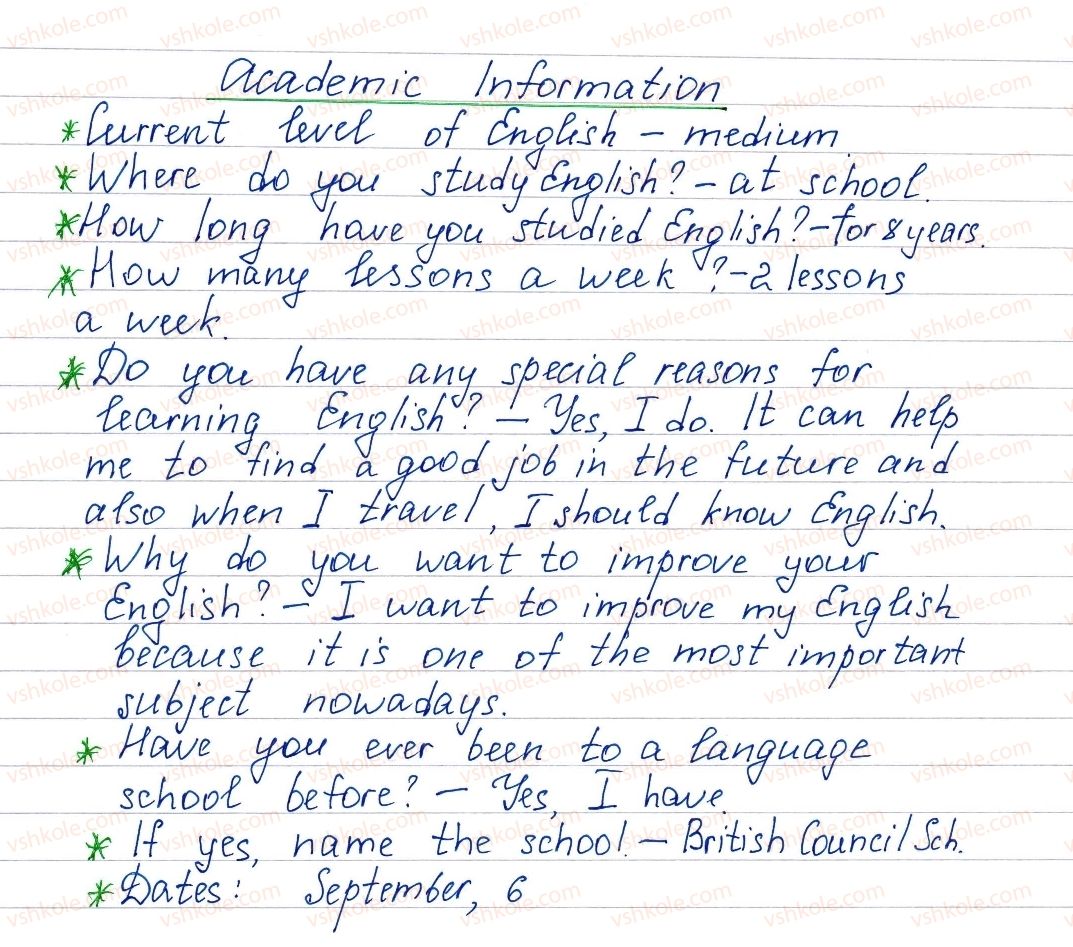 Academic Information
* Current level of English – medium.
* Where do you study English? – at school.
* How long have you studied English? – for 8 years.
* How many lessons a week? – 2 lessons
a week.
* Do you have any special reasons for
learning English? – Yes, I do. It can help
me to find a good job in the future and
also when I travel, I should know English.
* Why do you want to improve your
English? – I want to improve my English
because it is one of the most important
subject nowadays.
* Have you ever been to a language
school before? – Yes, I have.
* If yes, name the school. – British Council Sch.
* Dates: September, 6
vshkole.com